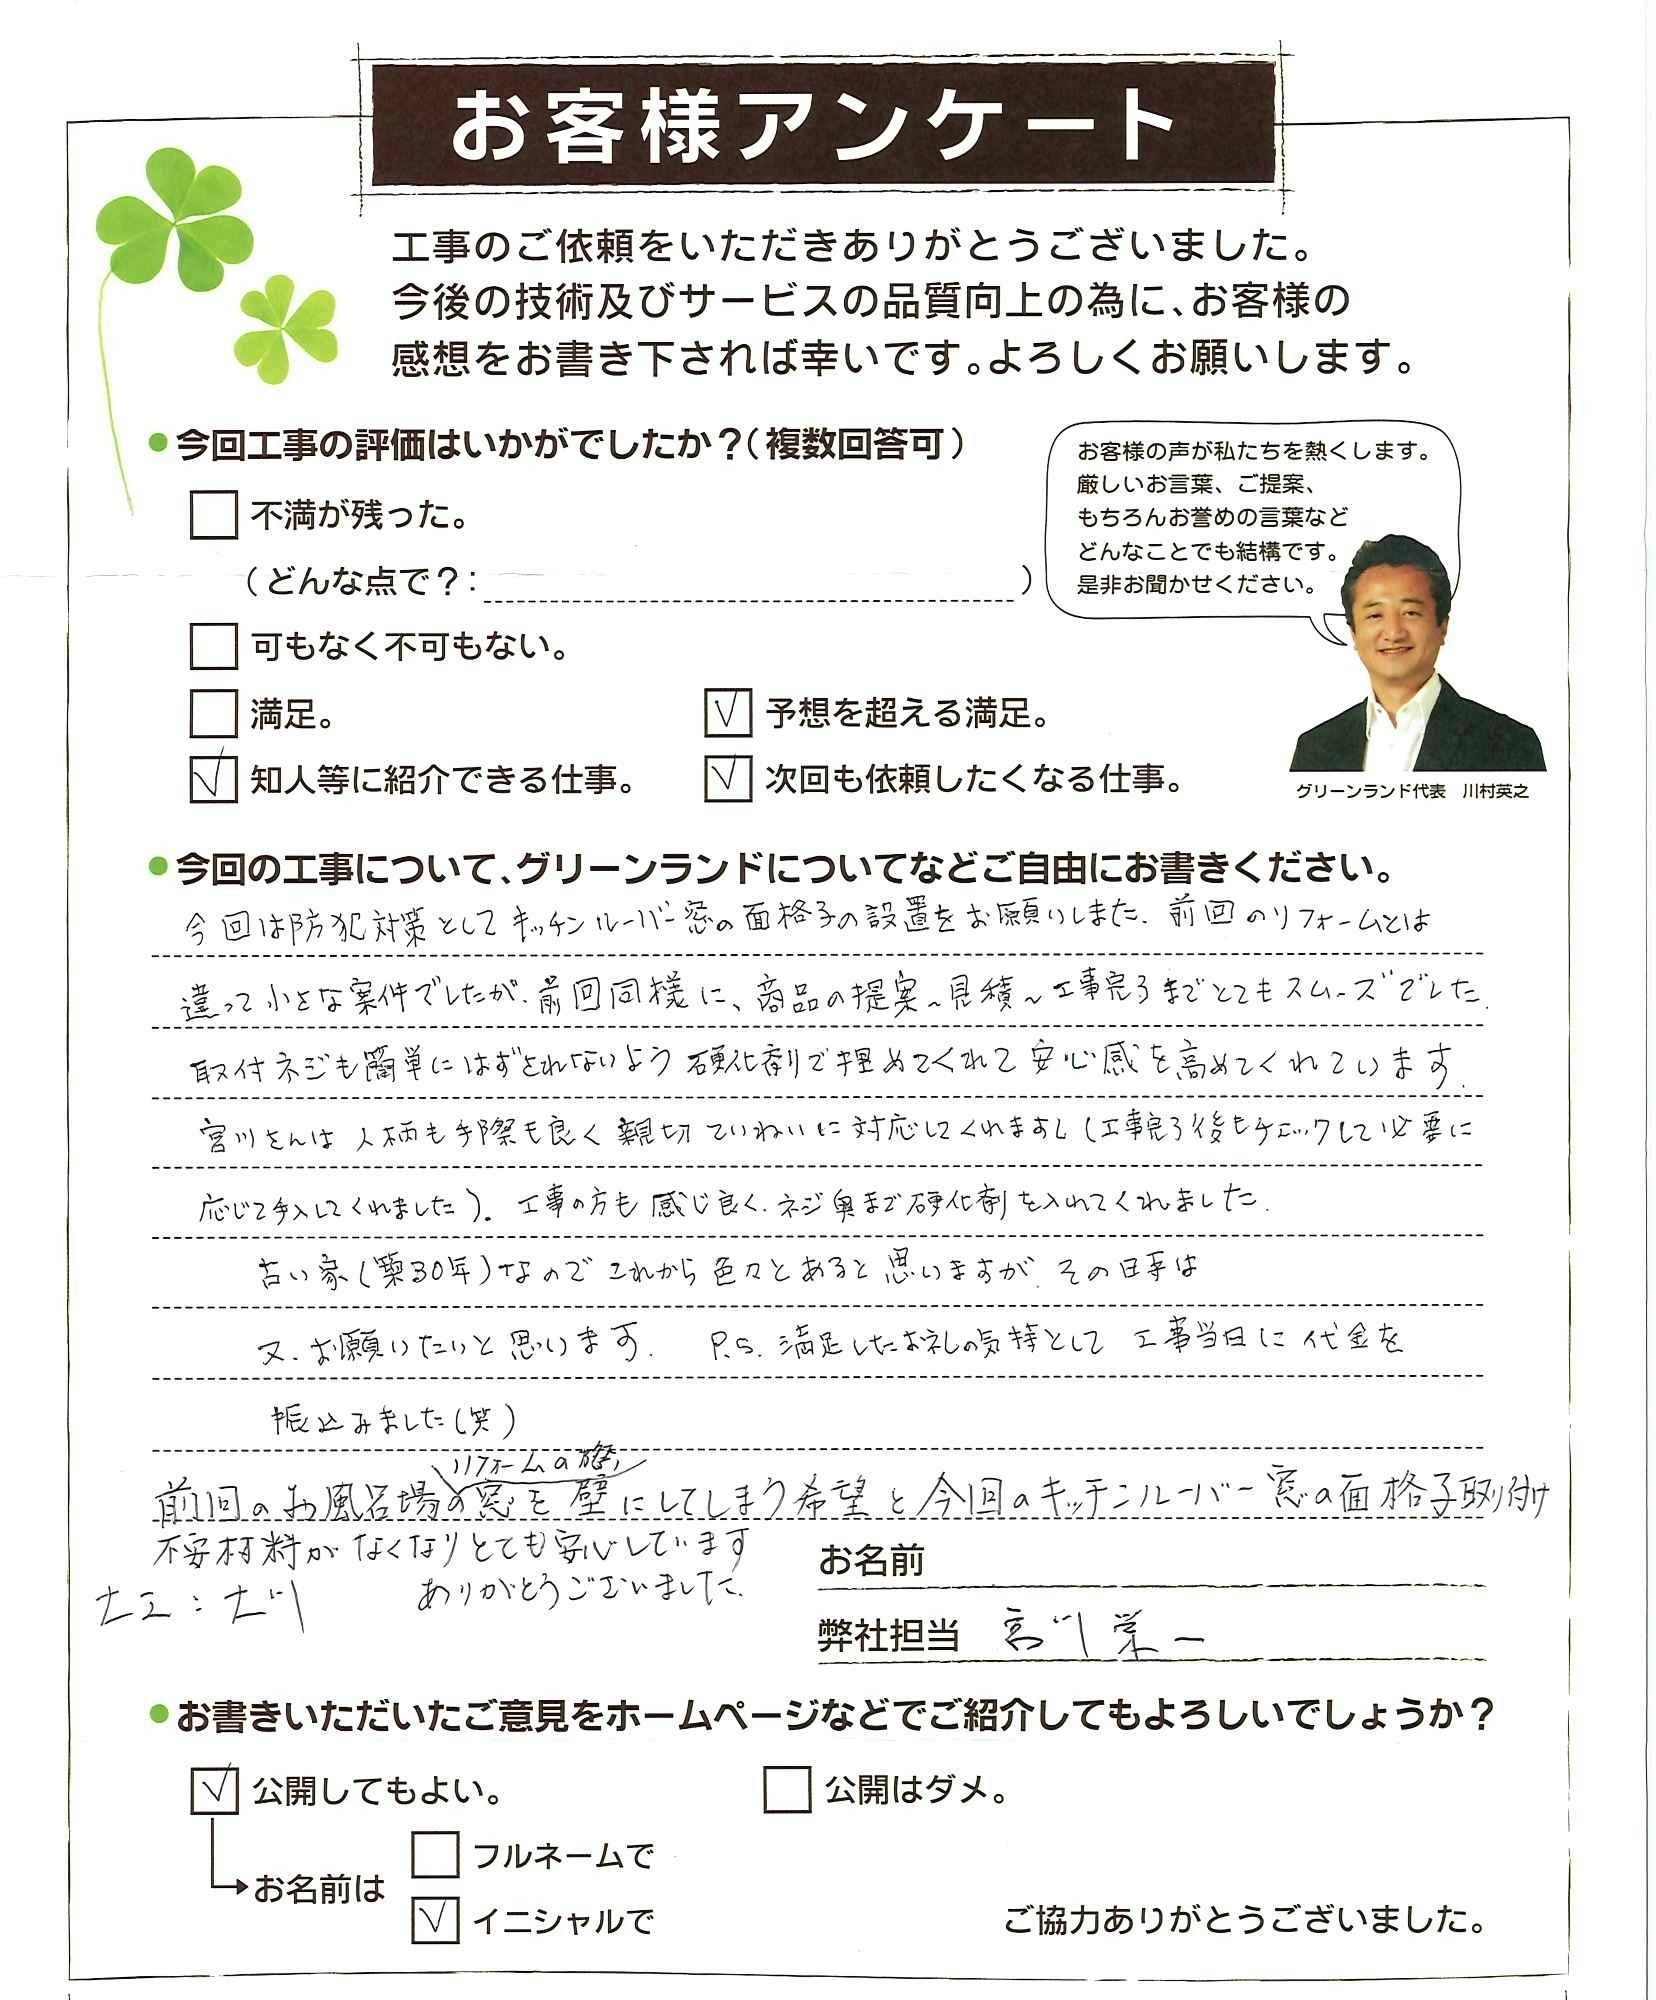 お客様アンケート
工事のご依頼をいただきありがとうございました。
今後の技術及びサービスの品質向上の為に、お客様の
感想をお書き下されば幸いです。よろしくお願いします。
●今回工事の評価はいかがでしたか？（複数回答可）
不満が残った。
（どんな点で？：　　　）
可もなく不可もない。
満足。
予想を超える満足。
知人等に紹介できる仕事。
次回も依頼したくなる仕事。
お客様の声が私たちを熱くします。
厳しいお言葉、ご提案、
もちろんお誉めの言葉など
どんなことでも結構です。
是非お聞かせください。
グリーンランド代表　川村英之
●今回の工事について、グリーンランドについてなどご自由にお書きください。
今回は防犯対策としてキッチンルーバー窓の面格子の設置をお願いしました。前回のリフォームとは
違って小さな案件でしたが、前回同様に、商品の提案～見積～工事完了までとてもスムーズでした。
取付ネジも簡単にはずされないよう硬化剤で埋めてくれて安心感を高めてくれています。
宮川さんは人柄も手際も良く親切ていねいに対応してくれますし（工事完了後もチェックして必要に
応じて手入してくれました）。工事の方も感じ良く、ネジ奥まで硬化剤を入れてくれました。
古い家（築30年）なのでこれから色々とあると思いますが、その時は
又、お願いたいと思います。　P.S. 満足したお礼の気持として工事当日に代金を
振込みました（笑）
リフォームの際、
前回のお風呂場の窓を壁にしてしまう希望と今回のキッチンルーバー窓の面格子取り付け
不安材料がなくなりとても安心しています
ありがとうございました。
お名前
弊社担当　宮川栄一
●お書きいただいたご意見をホームページなどでご紹介してもよろしいでしょうか？
公開してもよい。
公開はダメ。
お名前は
フルネームで
イニシャルで
ご協力ありがとうございました。